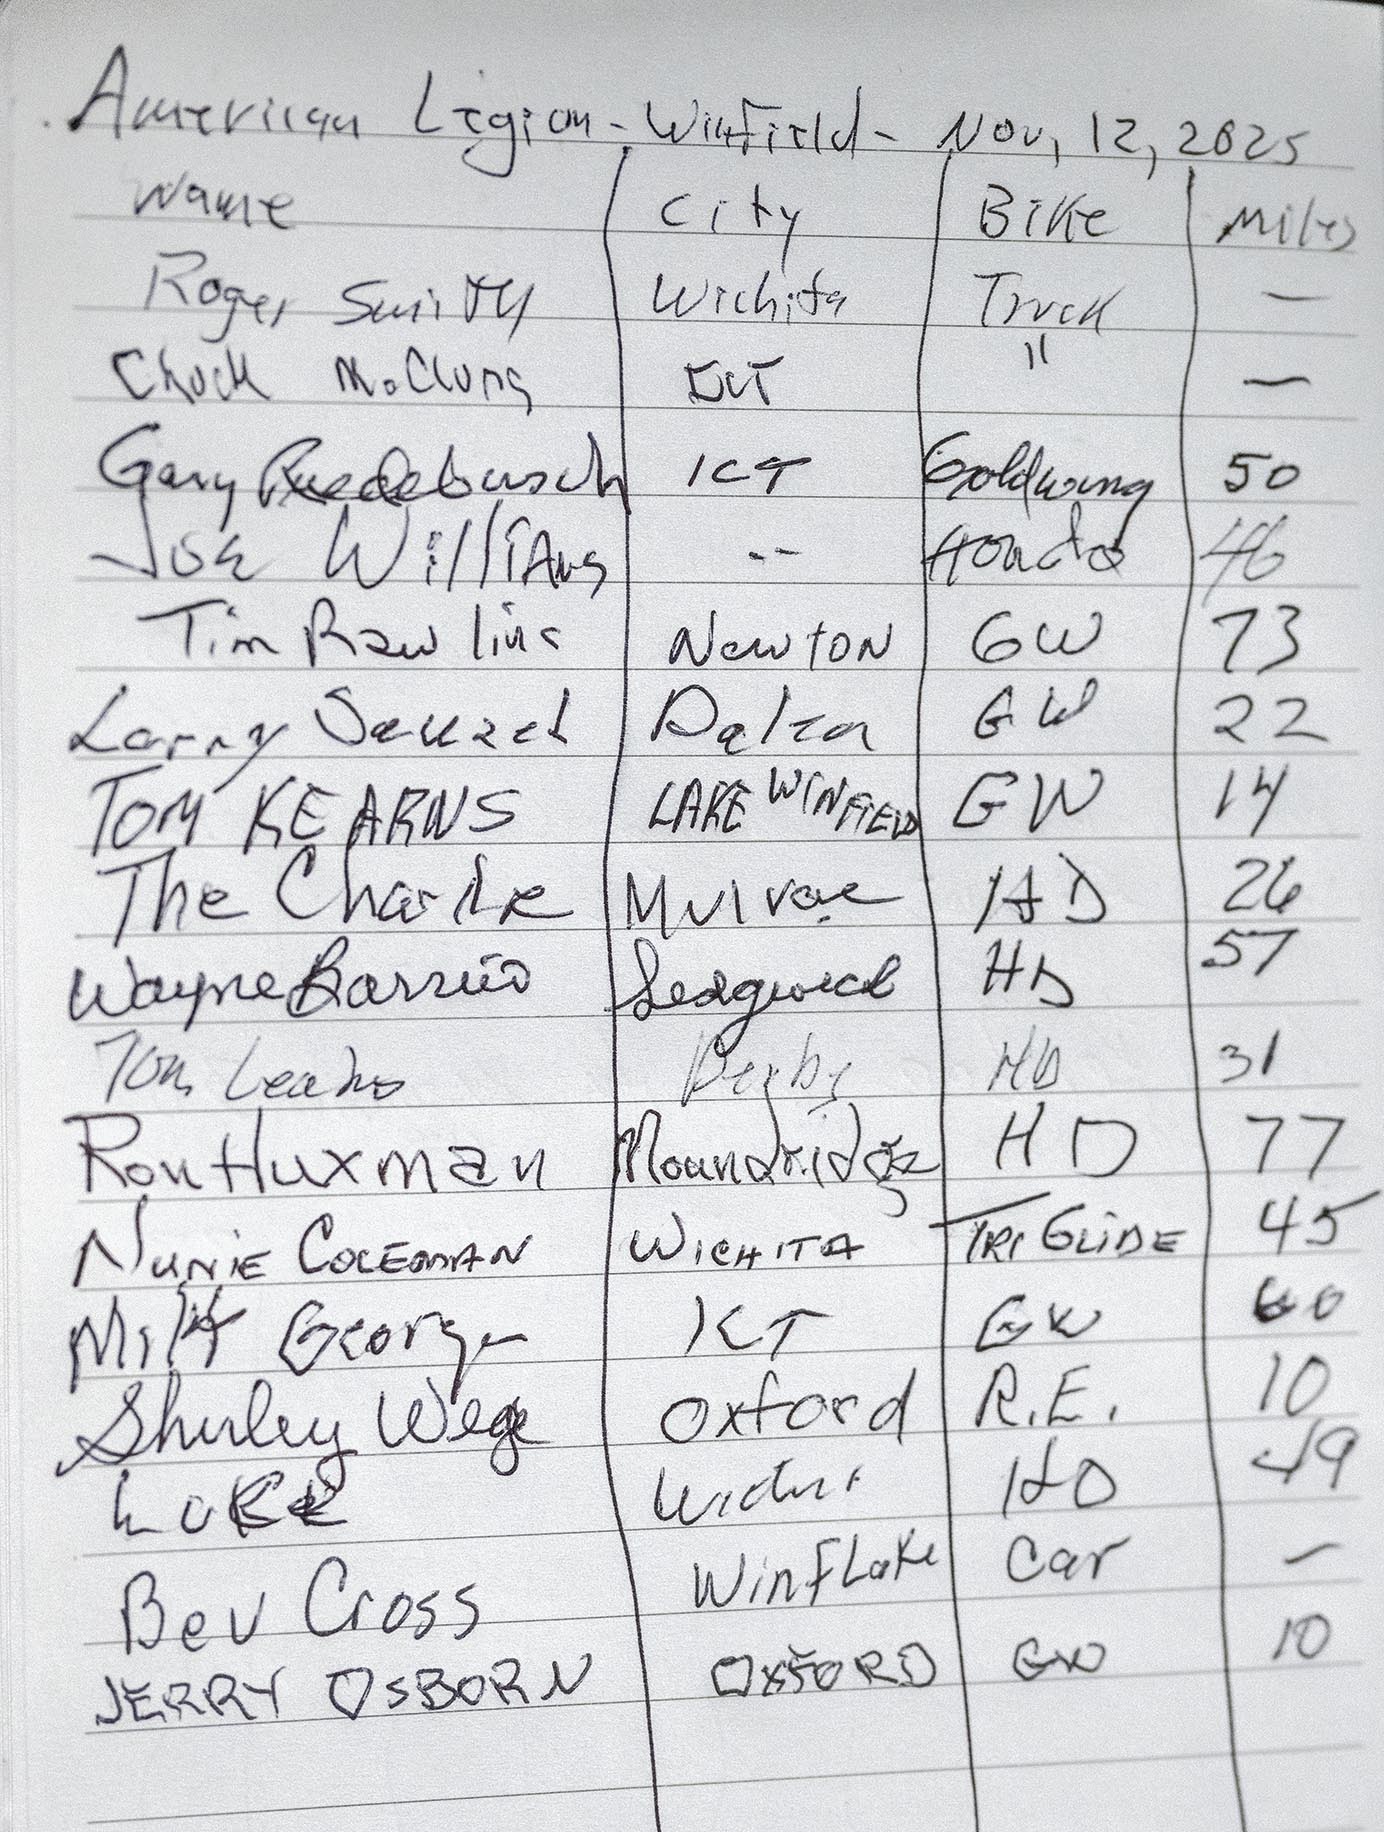 American Legion - Winfield - Nov, 12, 2025
Name City Bike Miles
Roger Smith Wichita Truck —
Chuck McClung ICT " —
Gary Ruedebusch ICT Goldwing 50
Joe Williams -- Honda 46
Tim Rawlins Newton GW 73
Larry GW 22
TOM KEARNS LAKE WINFIELD GW 14
The Charlie Mulvane HD 26
Wayne Barrio Sedgwick HD 57
Tom Derby HD 31
Ron Huxman Moundridge HD 77
NUNIE COLEMAN WICHITA TRI GLIDE 45
Milt George ICT GW 60
Shirley Wege Oxford R.E. 10
Luke HD 49
Bev Cross Winf Lake Car —
JERRY OSBORN OXFORD GW 10